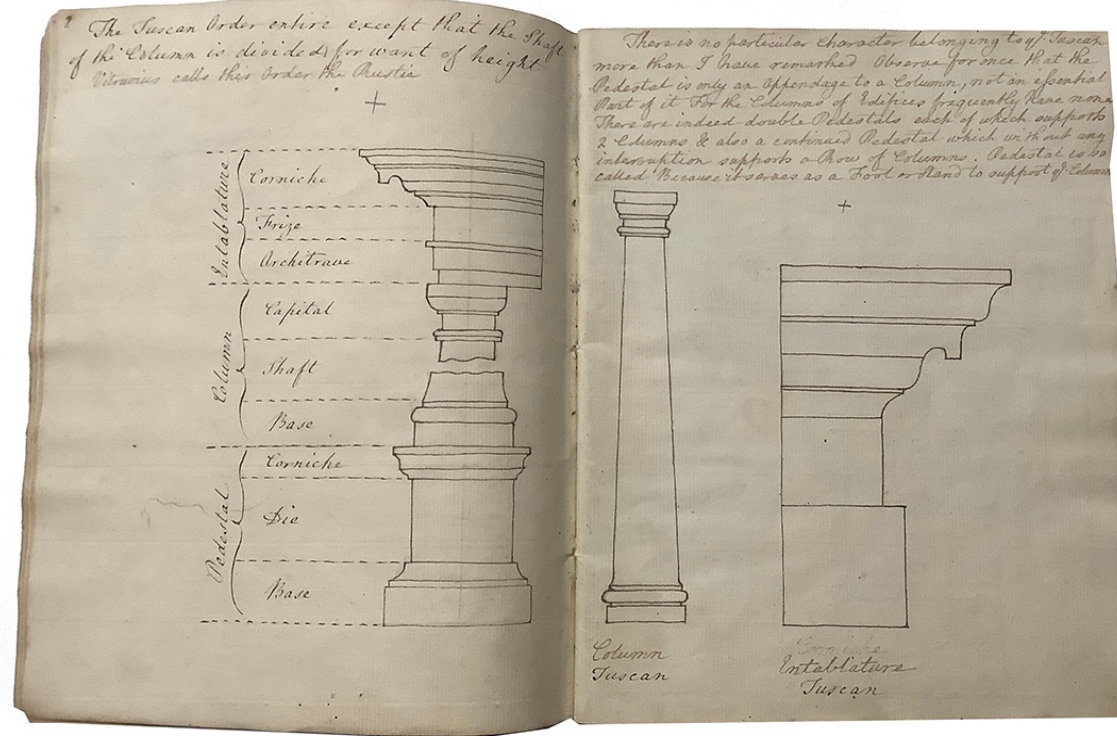 2
The Tuscan Order entire except that the Shaft
of the Column is divided for want of height
Vitruvius calls this Order the Rustic
Entablature
Corniche
Frize
Architrave
Column
Capital
Shaft
Base
Pedestal
Corniche
Die
Base
There is no particular Character belonging to ye. Tuscan
more than I have remarked Observe for once that the
Pedestal is only an Appendage to a Column, not an essential
Part of it For the Columns of Edifices frequently have none
There are indeed double Pedestals each of which supports
2 Columns & also a continued Pedestal which without any
interruption supports a Row of Columns. Pedestal is so
called Because it serves as a Foot or Stand to support ye. Column
Column
Tuscan
Corniche
Entablature
Tuscan